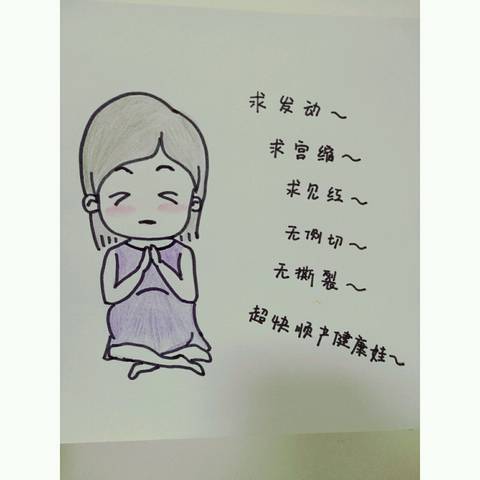 求发动～
求宫缩～
求见红～
无侧切～
无撕裂～
超快顺产健康娃～